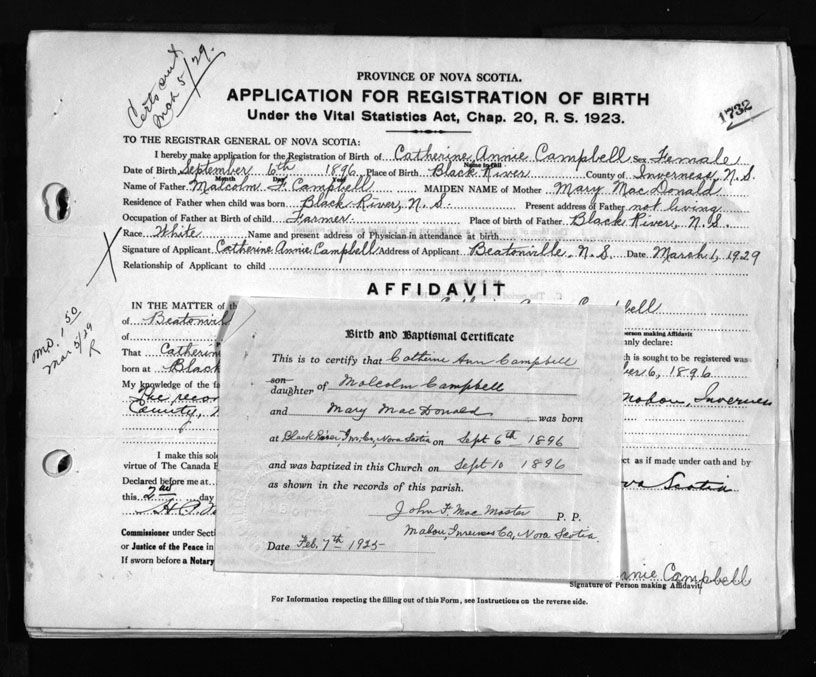 Certs out
Mch 5/29.
PROVINCE OF NOVA SCOTIA.
APPLICATION FOR REGISTRATION OF BIRTH
Under the Vital Statistics Act, Chap. 20, R. S. 1923.
1732
TO THE REGISTRAR GENERAL OF NOVA SCOTIA:
I hereby make application for the Registration of Birth of Catherine Annie Campbell Sex Female
Name in full
Date of Birth September 6th 1896 Place of Birth Black River County of Inverness, N.S.
Month Day Year
Name of Father Malcolm F. Campbell MAIDEN NAME of Mother Mary MacDonald
Residence of Father when child was born Black River, N.S. Present address of Father not living
Occupation of Father at Birth of child Farmer. Place of birth of Father Black River, N.S.
Race White Name and present address of Physician in attendance at birth
Signature of Applicant Catherine Annie Campbell Address of Applicant Beatonville, N.S. Date March 1, 1929
Relationship of Applicant to child
AFFIDAVIT
IN THE MATTER of th
Campbell
of Beatonvil
person making Affidavit
of
nly declare:
That Catherin
h is sought to be registered was
born at Black
ber 6, 1896
My knowledge of the fa
The recor
Mabou, Inverness
County, N
I make this sol
ct as if made under oath and by
virtue of The Canada E
Declared before me at
va Scotia
this 2nd day
Commissioner under Secti
or Justice of the Peace in
If sworn before a Notary
nnie Campbell
Signature of Person making Affidavit
For Information respecting the filling out of this Form, see Instructions on the reverse side.
MO. 1.50
Mar 5/29
R
Birth and Baptismal Certificate
This is to certify that Catherine Ann Campbell
son
daughter of Malcolm Campbell
and Mary MacDonald was born
at Black River, Inv. Co, Nova Scotia on Sept 6th 1896
and was baptized in this Church on Sept 10 1896
as shown in the records of this parish.
John F. MacMaster P. P.
Mabou, Inverness Co, Nova Scotia.
Date Feb. 7th 1925